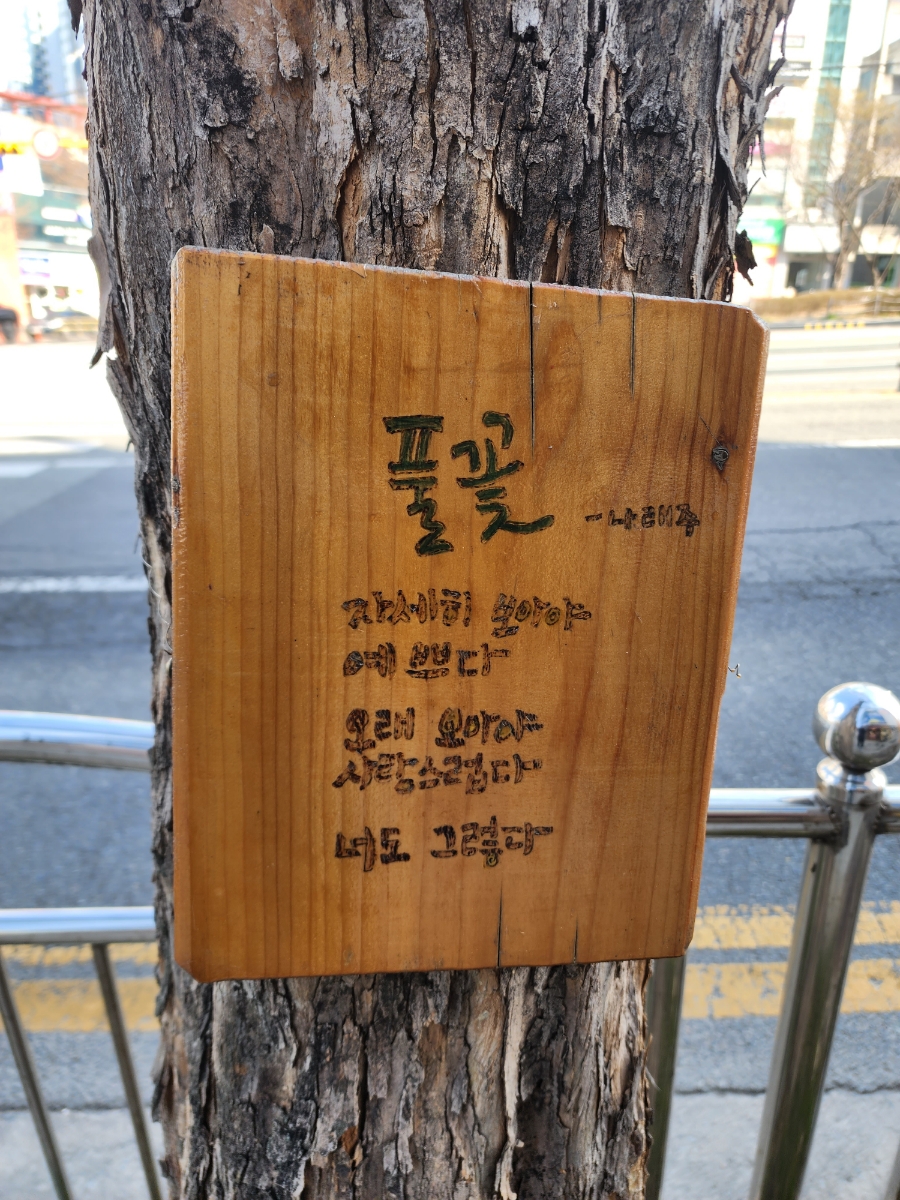 풀꽃
-나태주
자세히 보아야
예쁘다
오래 보아야
사랑스럽다
너도 그렇다